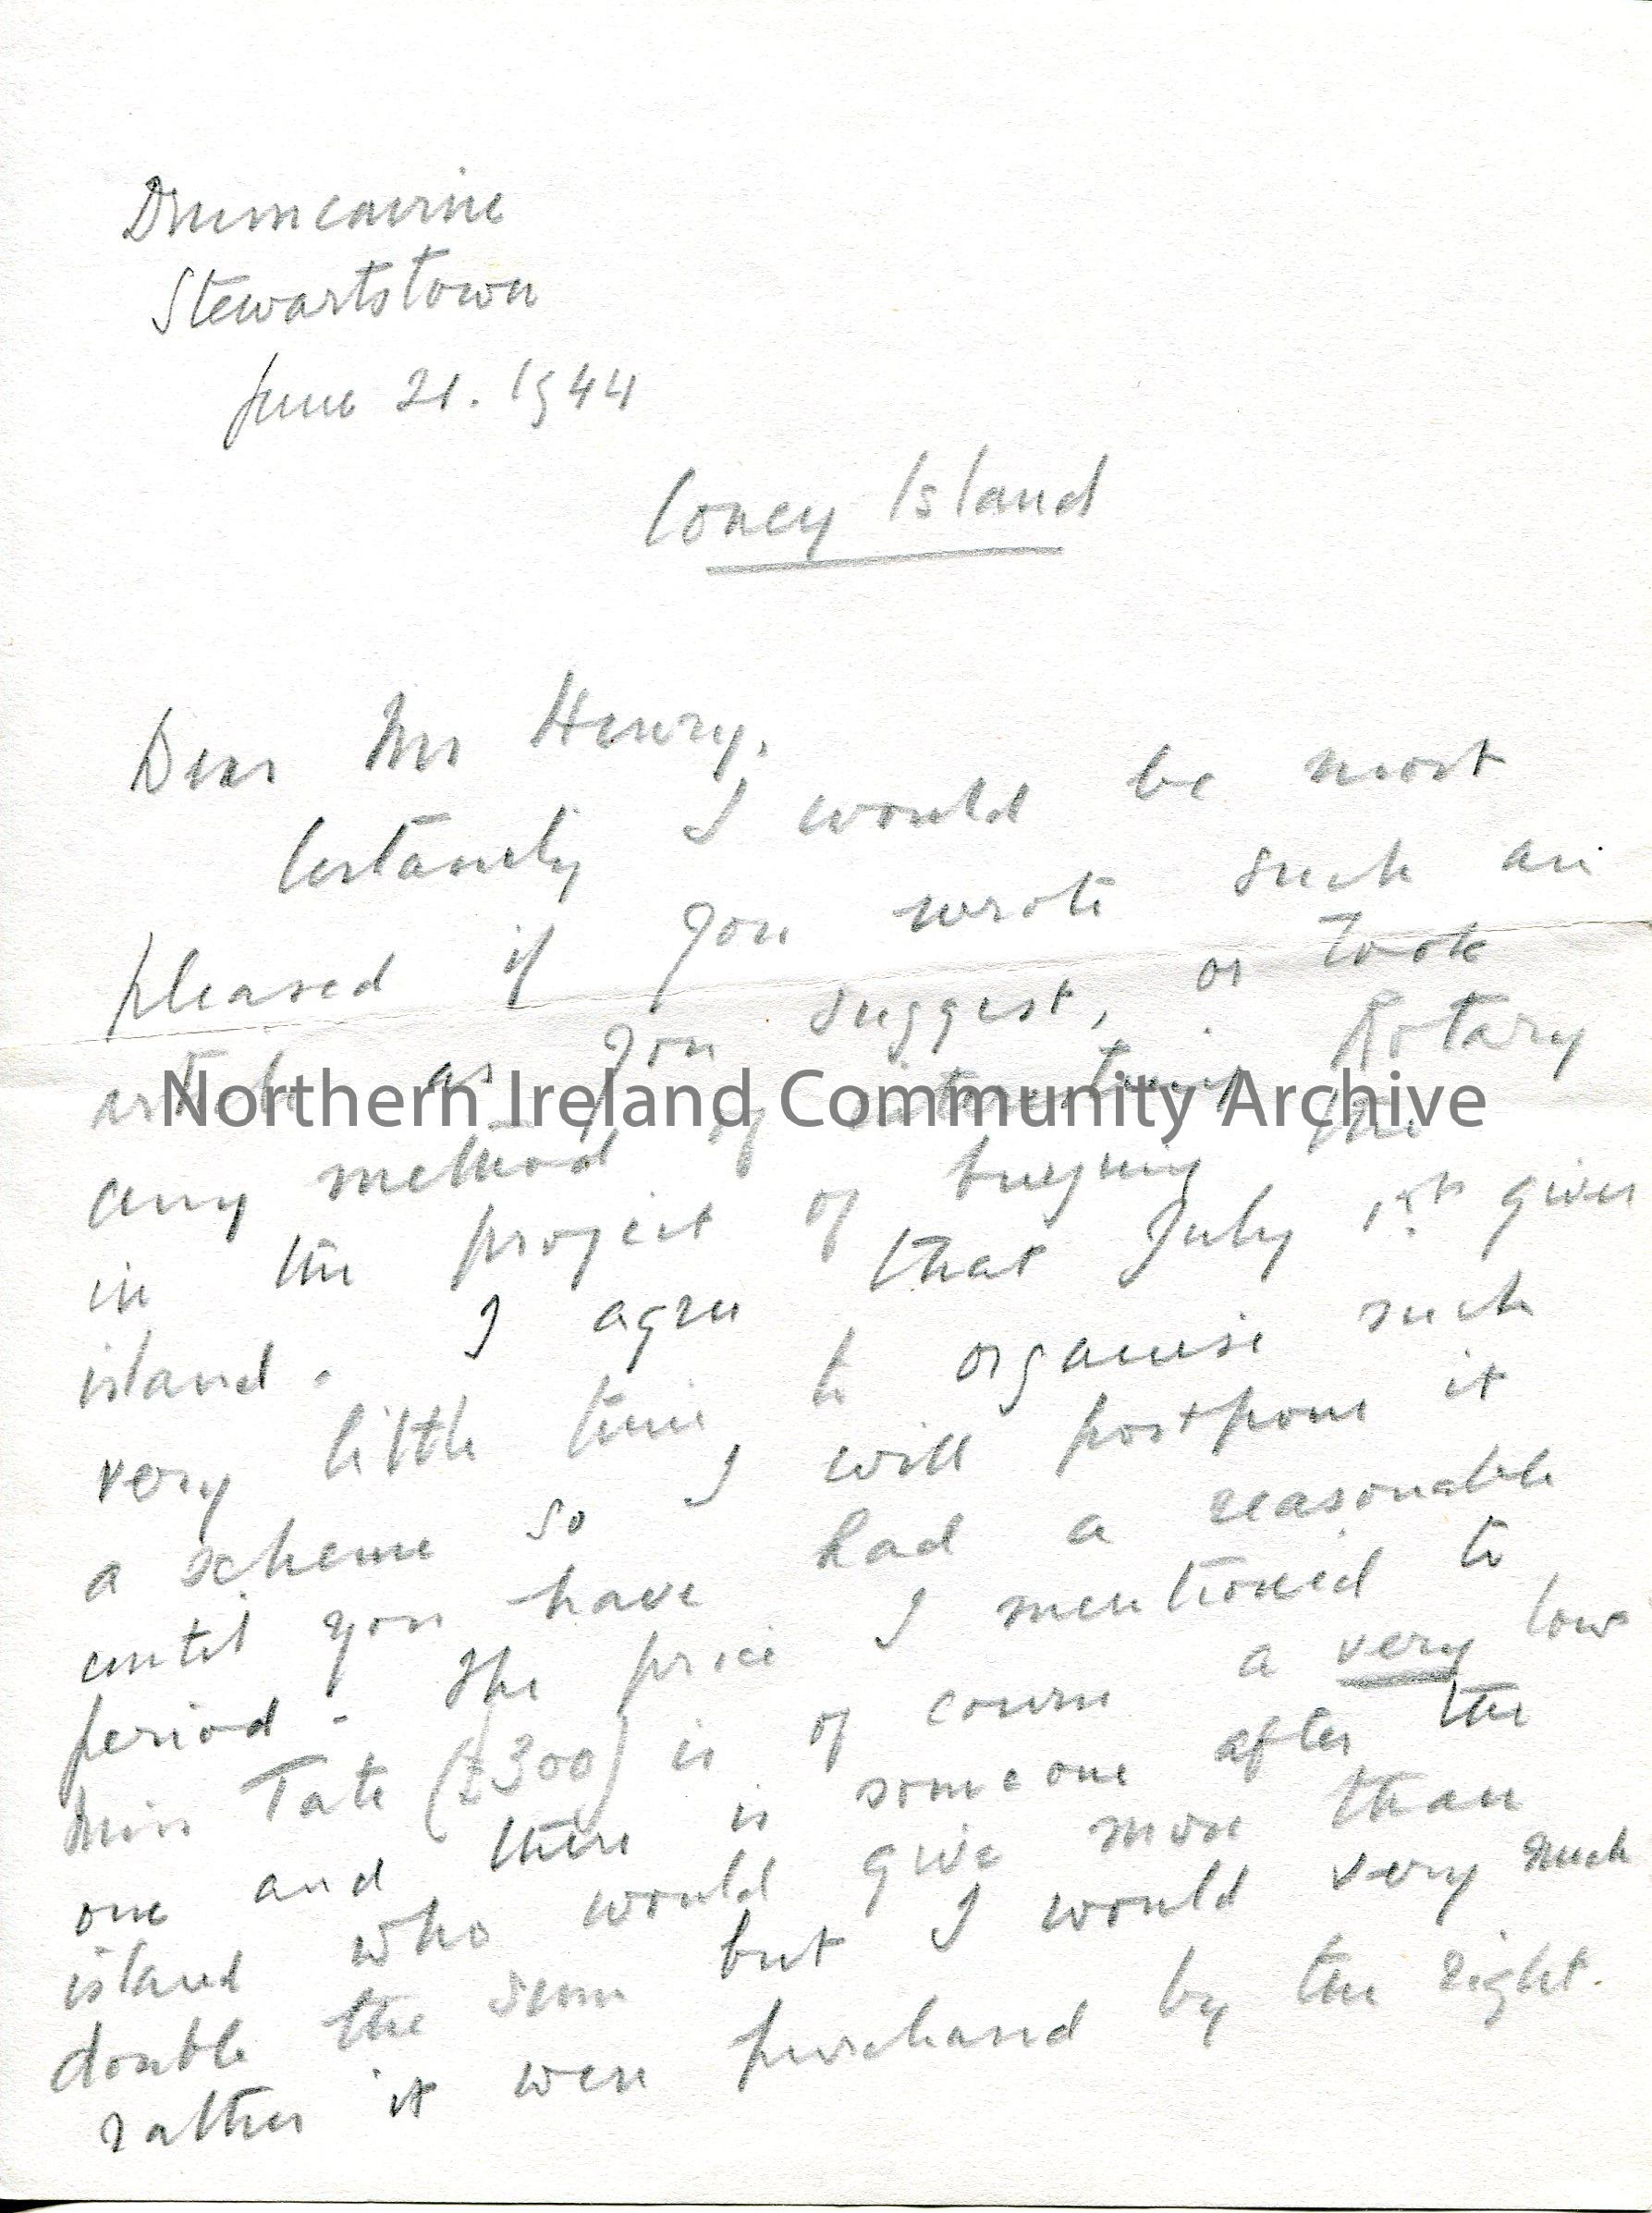 Drumcairne
Stewartstown
June 21. 1944
Coney Island
Dear Mr Henry,
Certainly I would be most
pleased if you wrote such an
article as you suggest, or took
Northern Ireland Community Archive
any method of interesting Rotary
in the project of buying the
island. I agree that July 1st gives
very little time to organise such
a scheme so I will postpone it
until you have had a reasonable
period. The price I mentioned to
Miss Tate (£300) is of course a very low
one and there is someone after the
island who would give more than
double the sum but I would very much
rather it were purchased by the right